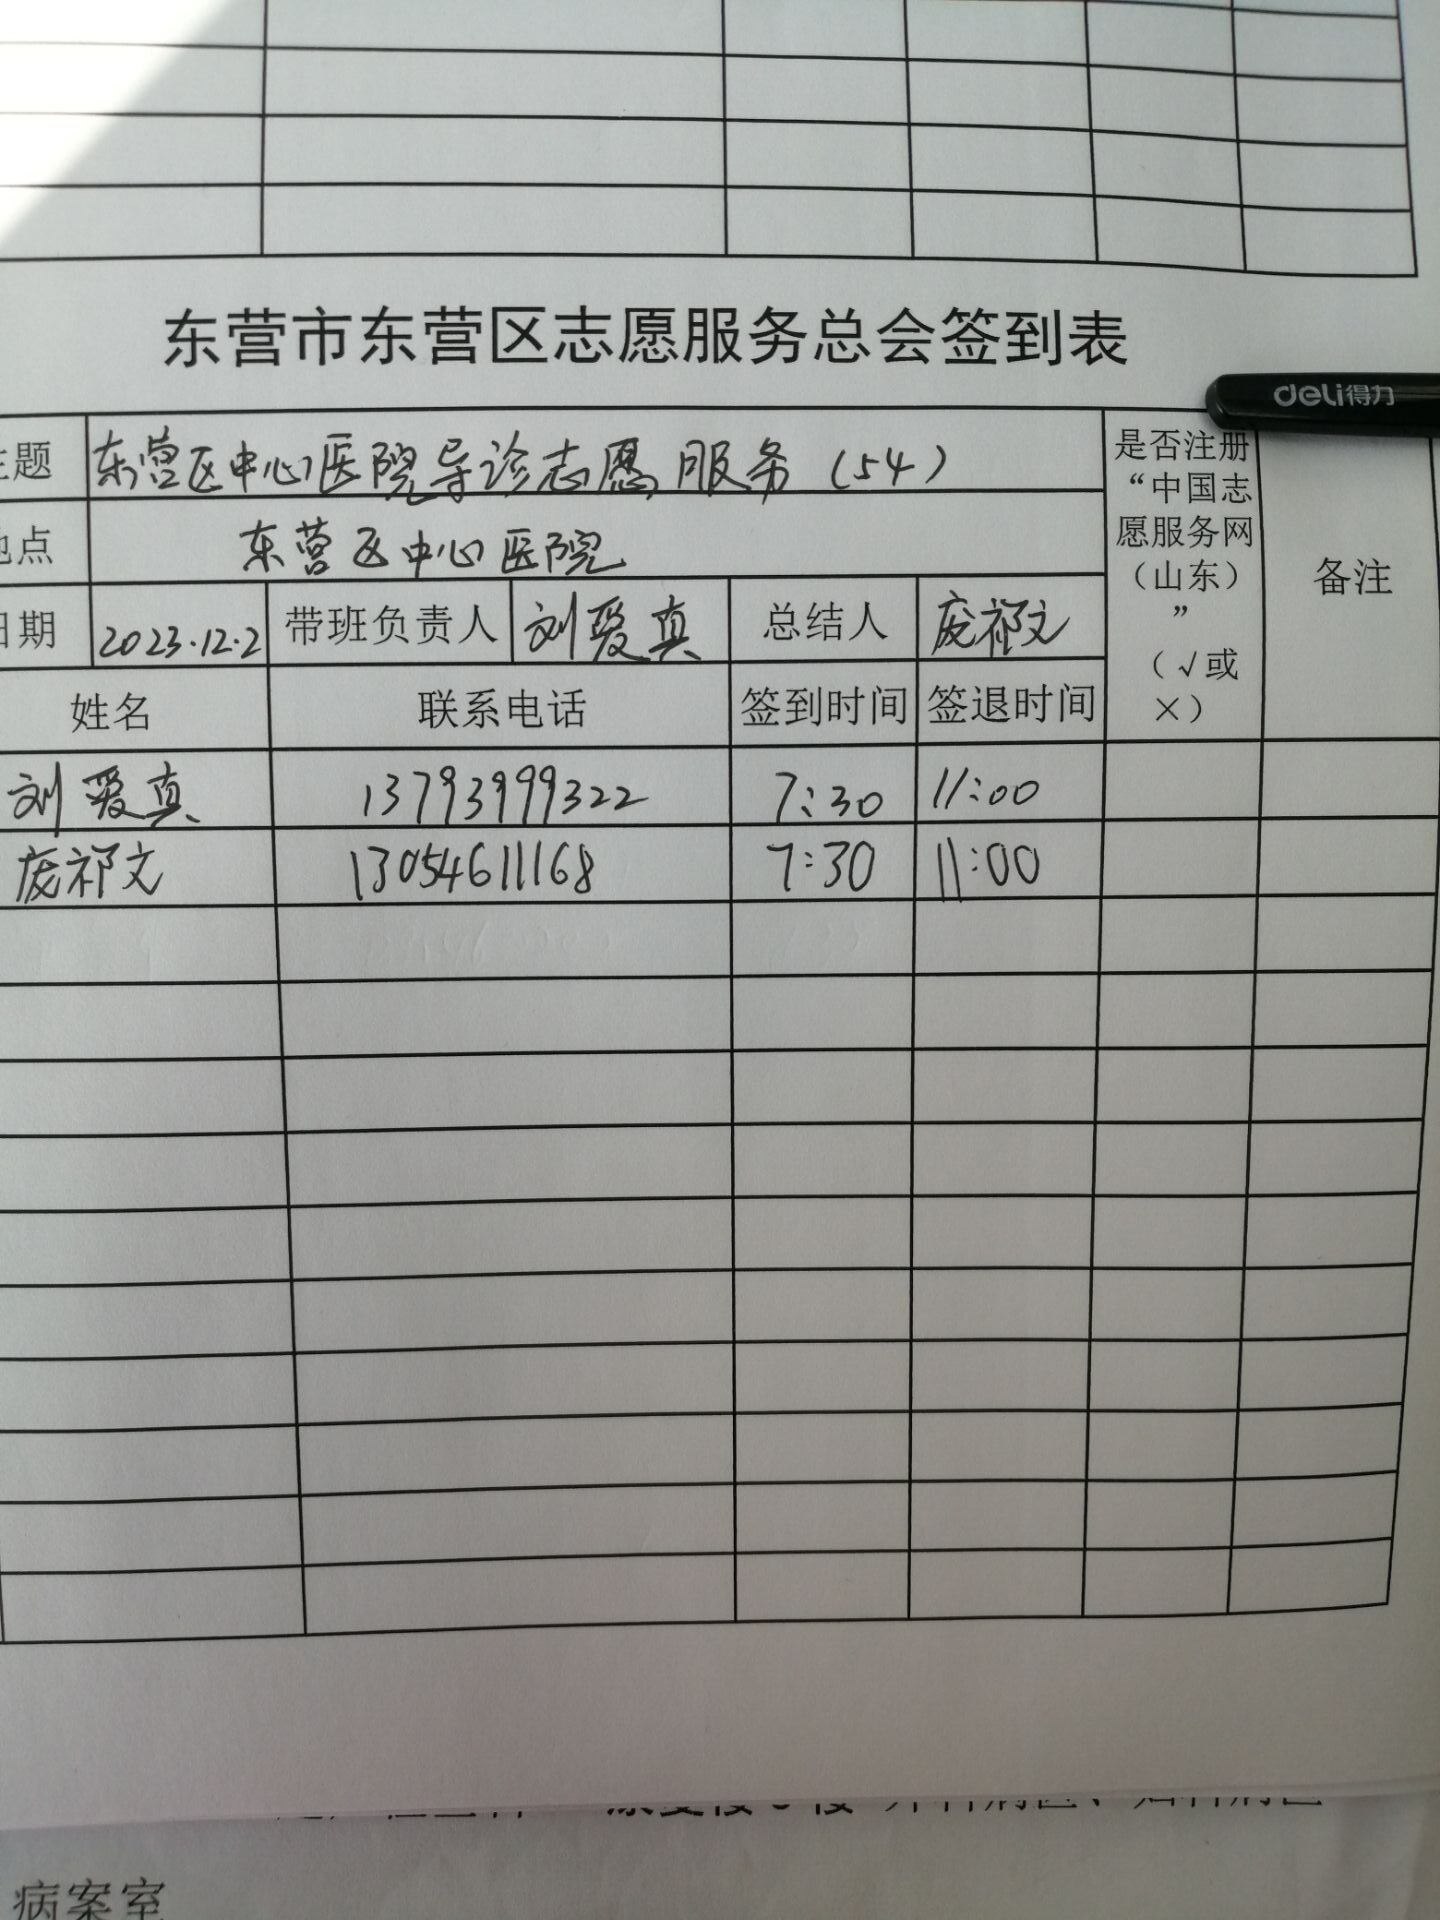 东营市东营区志愿服务总会签到表
deli得力
主题 东营区中心医院导诊志愿服务（54）
是否注册“中国志愿服务网（山东）”（√或×）
备注
地点 东营区中心医院
日期 2023.12.2 带班负责人 刘爱真 总结人 庞祁文
姓名 联系电话 签到时间 签退时间
刘爱真 13793999322 7:30 11:00
庞祁文 13054611168 7:30 11:00
病案室